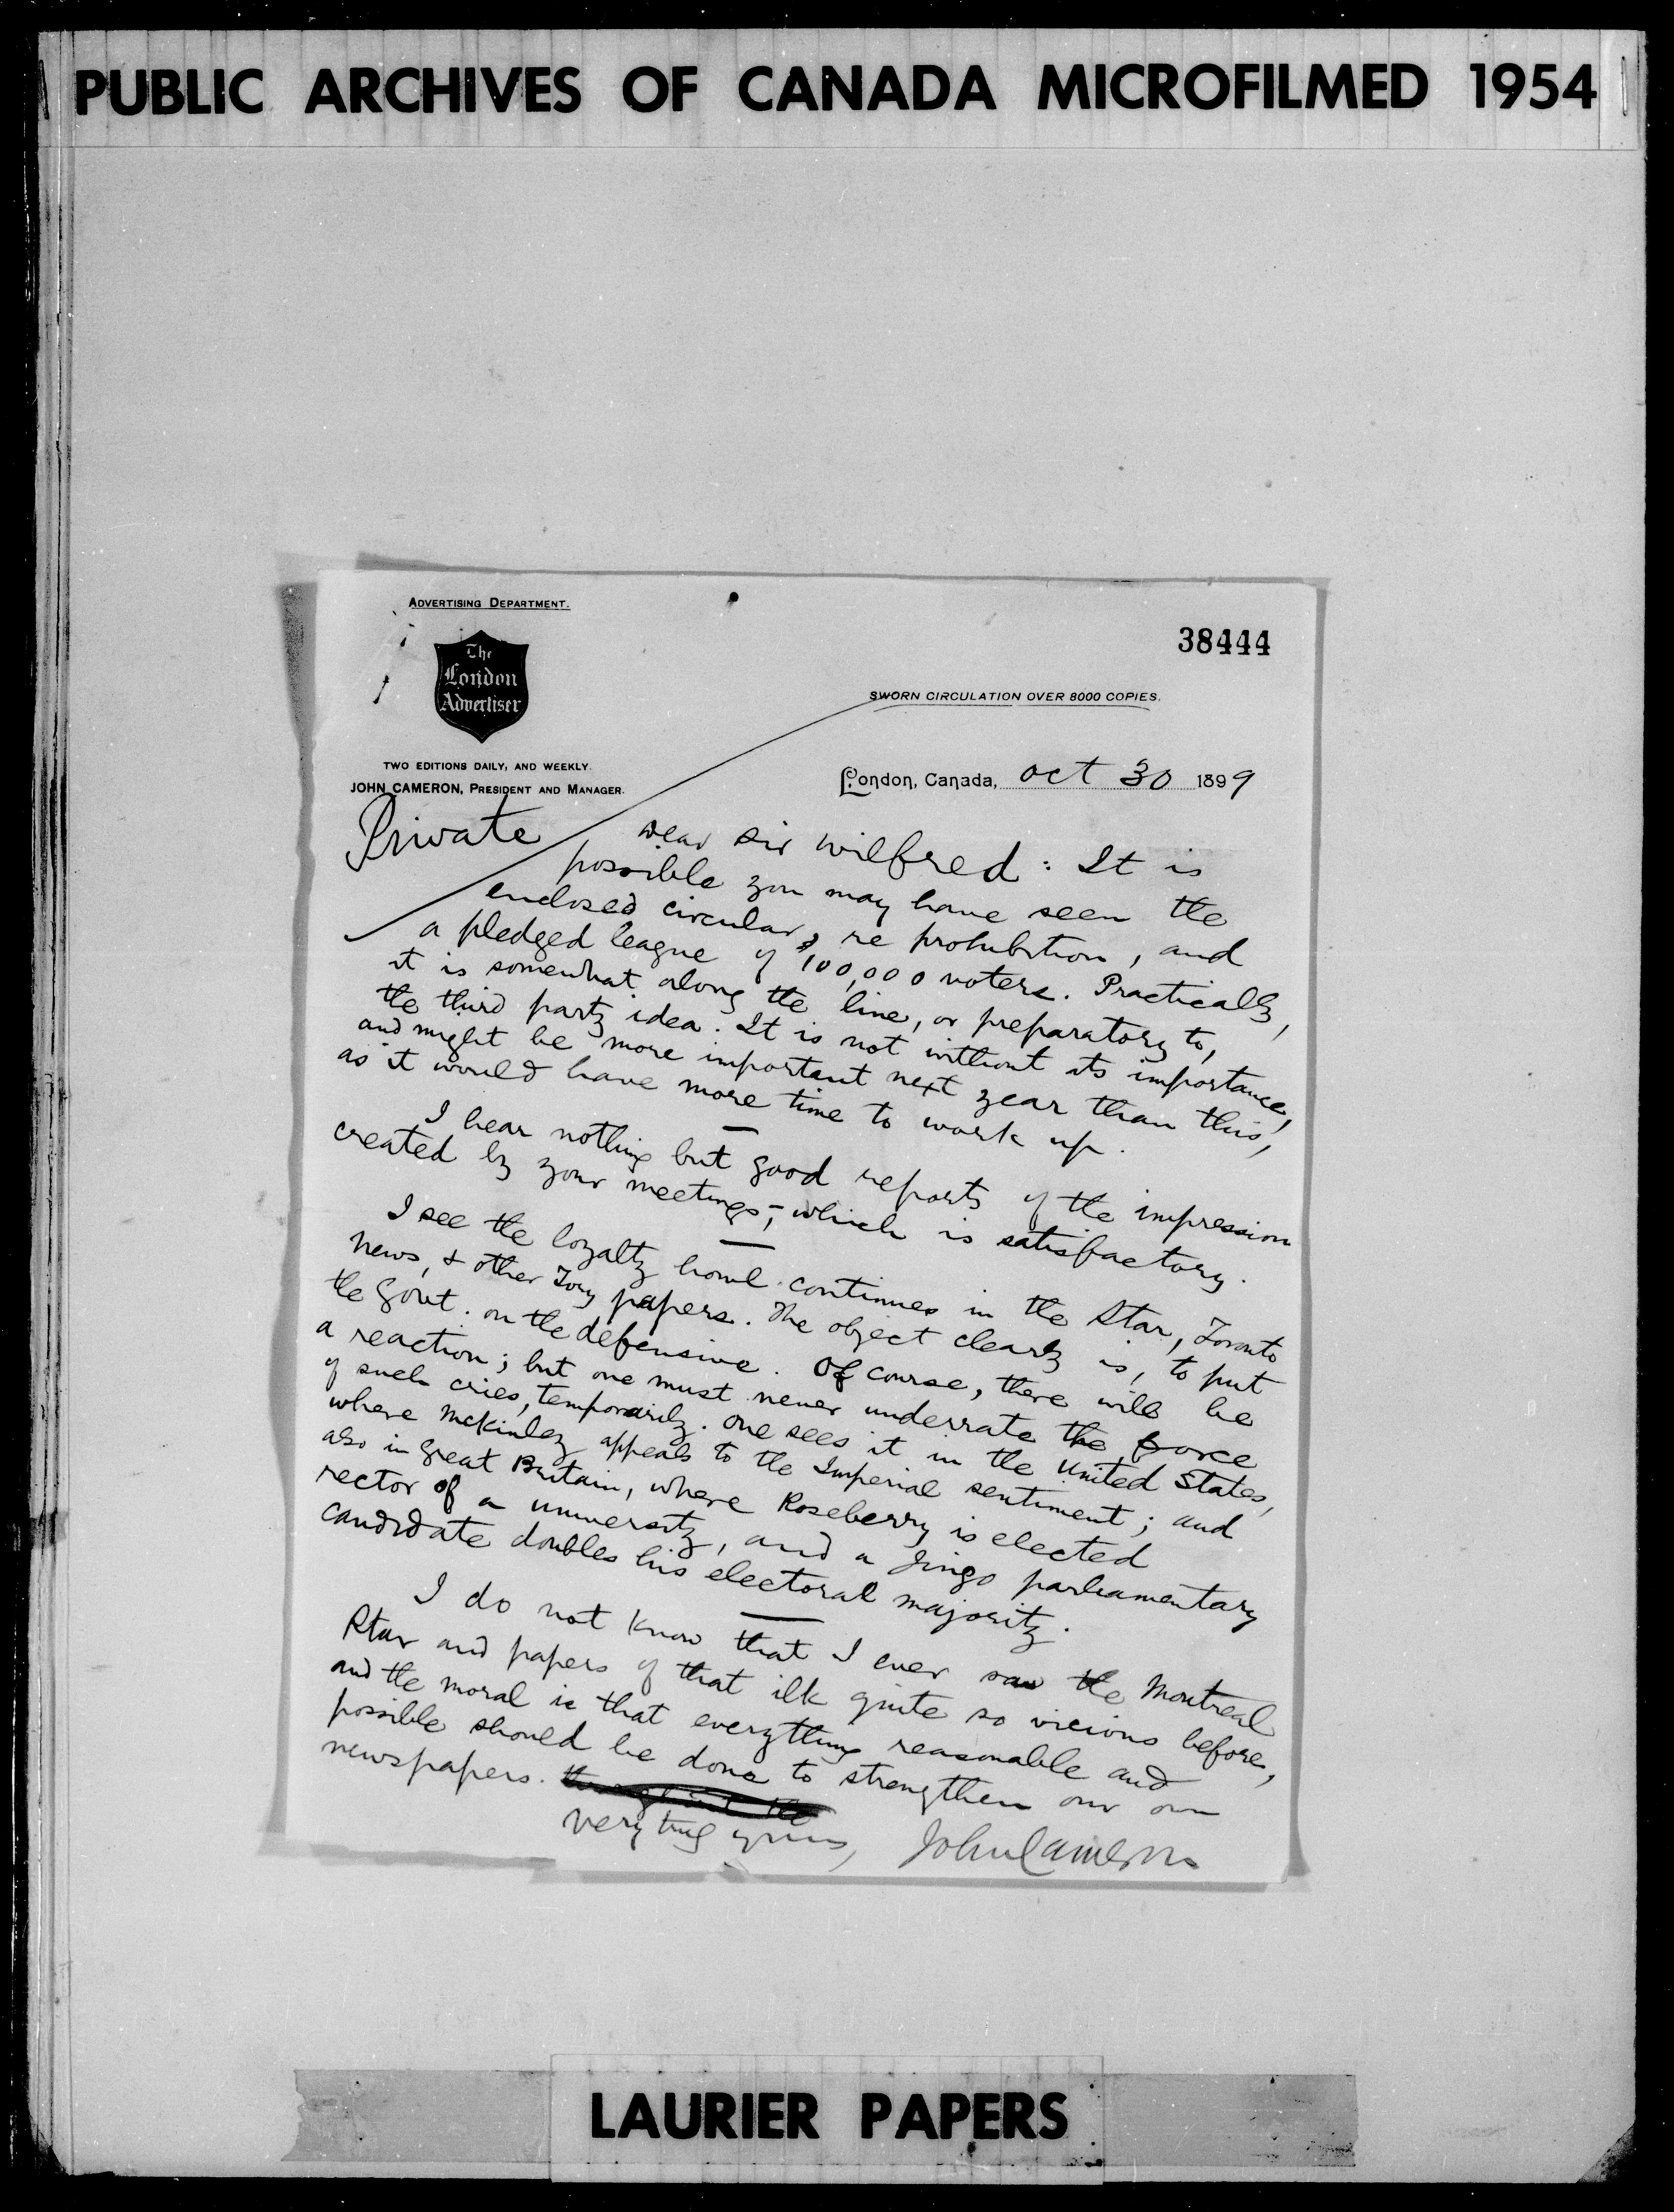 PUBLIC ARCHIVES OF CANADA MICROFILMED 1954
ADVERTISING DEPARTMENT.
38444
The
London
Advertiser
SWORN CIRCULATION OVER 8000 COPIES.
TWO EDITIONS DAILY, AND WEEKLY.
JOHN CAMERON, PRESIDENT AND MANAGER.
London, Canada, Oct 30 1899
Private
Dear Sir Wilfred: It is
possible you may have seen the
enclosed circular, re prohibition, and
a pledged league of 100,000 voters. Practically,
it is somewhat along the line, or preparatory to,
the third party idea. It is not without its importance,
and might be more important next year than this,
as it would have more time to work up.
I hear nothing but good reports of the impression
created by your meetings; which is satisfactory.
I see the loyalty howl continues in the Star, Toronto
News, & other Tory papers. The object clearly is, to put
the Govt. on the defensive. Of course, there will be
a reaction; but one must never underrate the force
of such cries, temporarily. One sees it in the United States,
where McKinley appeals to the Imperial sentiment; and
also in Great Britain, where Roseberry is elected
rector of a university, and a Jingo parliamentary
candidate doubles his electoral majority.
I do not know that I ever saw the Montreal
Star and papers of that ilk quite so vicious before,
and the moral is that everything reasonable and
possible should be done to strengthen our own
newspapers.
Very truly yours, John Cameron
LAURIER PAPERS